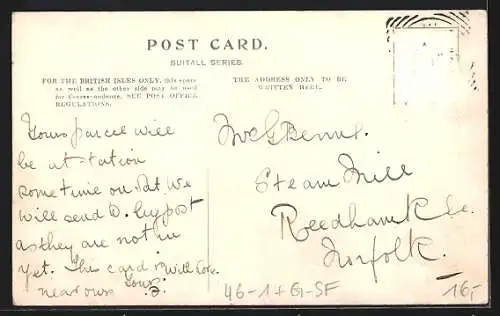 POST CARD.
SUITALL SERIES.
FOR THE BRITISH ISLES ONLY, this space
as well as the other side may be used
for Correspondence. SEE POST OFFICE
REGULATIONS.
THE ADDRESS ONLY TO BE
WRITTEN HERE.
Yours parcel will
be at tation
sometime on Sat. We
will send D. by post
as they are not in
yet. This card will
near ours Yours
Steam Mill
Reedham
Norfolk.
46-1+G-SF
16,-